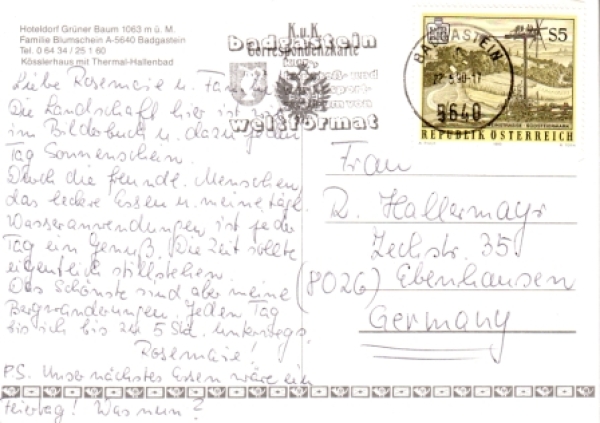 Hoteldorf Grüner Baum 1063 m ü. M.
Familie Blumschein A-5640 Badgastein
Tel. 0 64 34 / 25 1 60
Kösslerhaus mit Thermal-Hallenbad
K.u.K
badgastein
Correspondenzkarte
weltformat
BADGASTEIN
5640
S5
REPUBLIK ÖSTERREICH
Liebe Rosemarie u.
Die Landschaft hier ist
im Bilderbuch u. dazu jeden
Tag Sonnenschein.
Durch die freundl. Menschen,
das leckere Essen u. meine tägl.
Wasseranwendungen ist jeder
Tag ein Genuß. Die Zeit sollte
eigentlich stillstehen.
Das Schönste sind aber meine
Bergwanderungen. Jeden Tag
bin ich bis zu 5 Std. unterwegs.
Rosemarie!
P.S. Unser nächstes Essen wäre ein
Feiertag! Was nun?
Frau
R. Hallermayr
Zechstr. 35
(8026) Ebenhausen
Germany